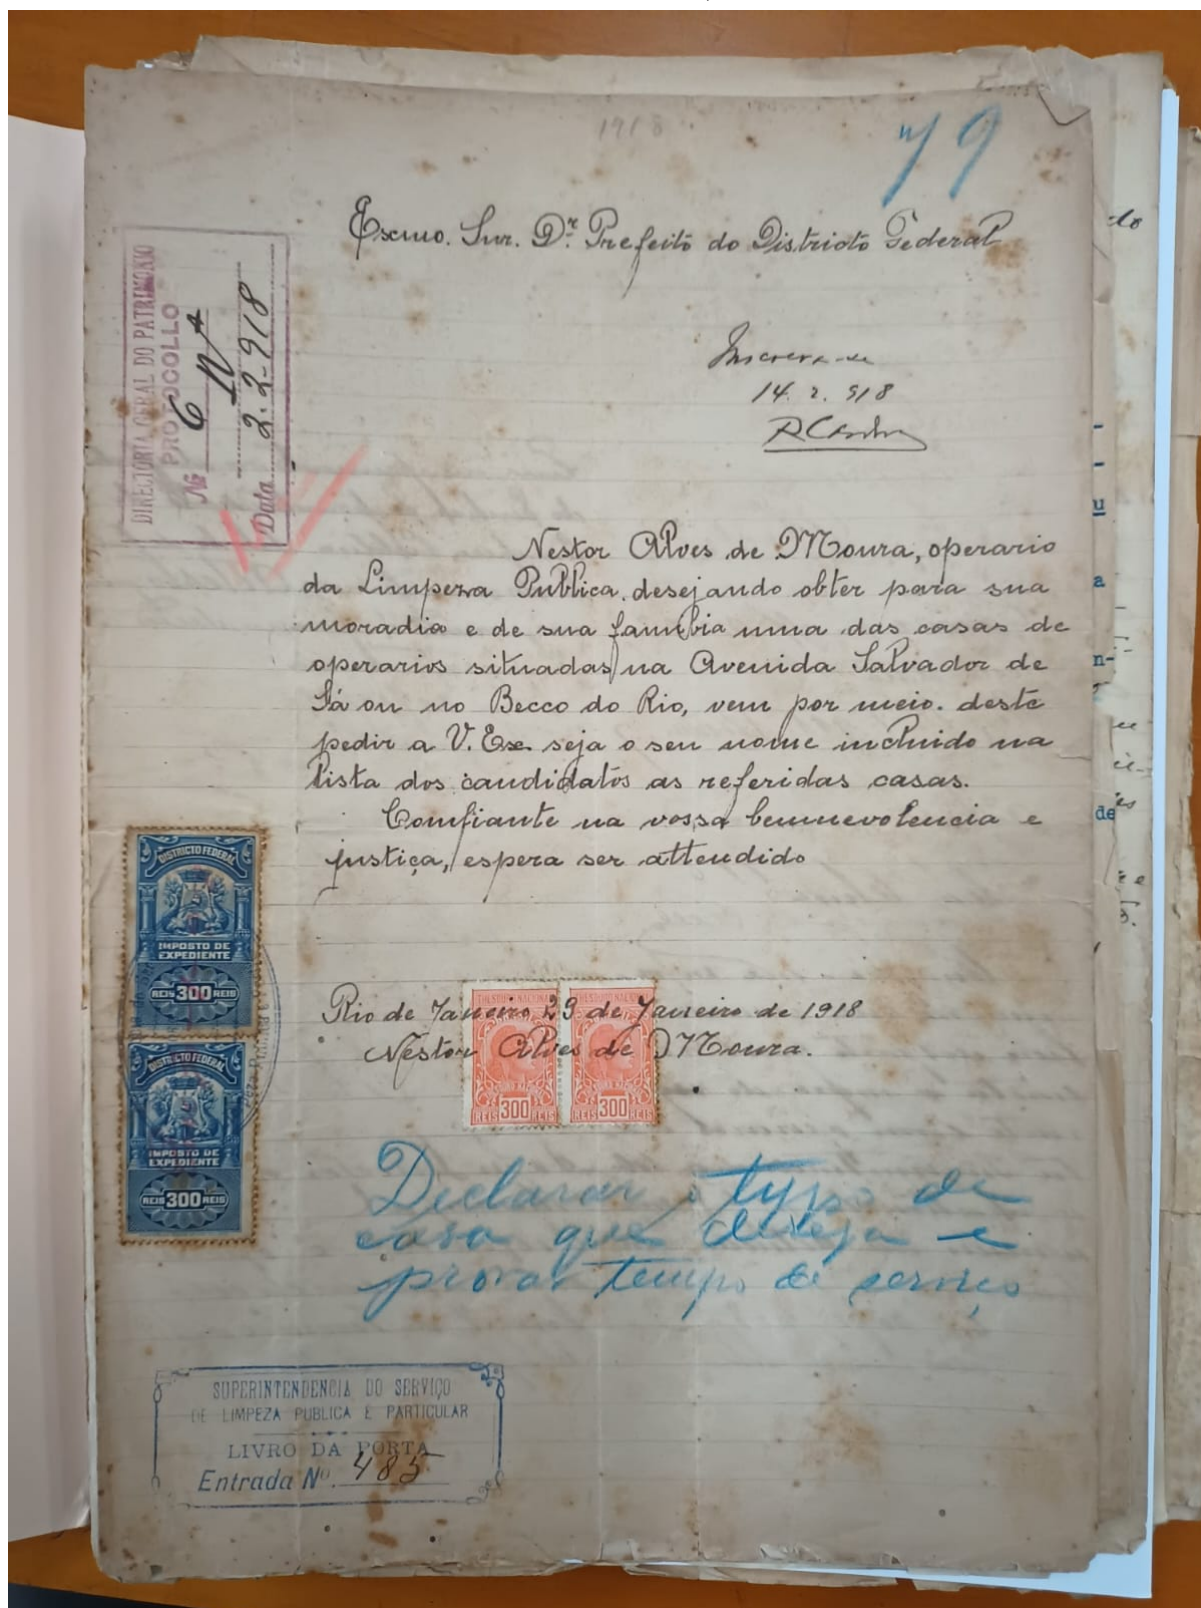 1918
79
Exmo. Snr. Dr. Prefeito do Districto Federal
DIRECTORIA GERAL DO PATRIMONIO
PROTOCOLLO
Nº 6
Data 2-2-918
Inscreva-se
14.2.918
Nestor Alves de Moura, operario
da Limpeza Publica, desejando obter para sua
moradia e de sua familia uma das casas de
operarios situadas na Avenida Salvador de
Sá ou no Becco do Rio, vem por meio deste
pedir a V. Ex. seja o seu nome incluido na
lista dos candidatos as referidas casas.
Comfiante na vossa bennevolencia e
justiça, espera ser attendido
DISTRICTO FEDERAL
IMPOSTO DE
EXPEDIENTE
REIS 300 REIS
DISTRICTO FEDERAL
IMPOSTO DE
EXPEDIENTE
REIS 300 REIS
THESOURO NACIONAL
REIS 300 REIS
THESOURO NACIONAL
REIS 300 REIS
Rio de Janeiro 29 de Janeiro de 1918
Nestor Alves de Moura.
Declarar o typo de
casa que deseja e
provar tempo de serviço
SUPERINTENDENCIA DO SERVIÇO
DE LIMPEZA PUBLICA E PARTICULAR
LIVRO DA PORTA
Entrada Nº. 485